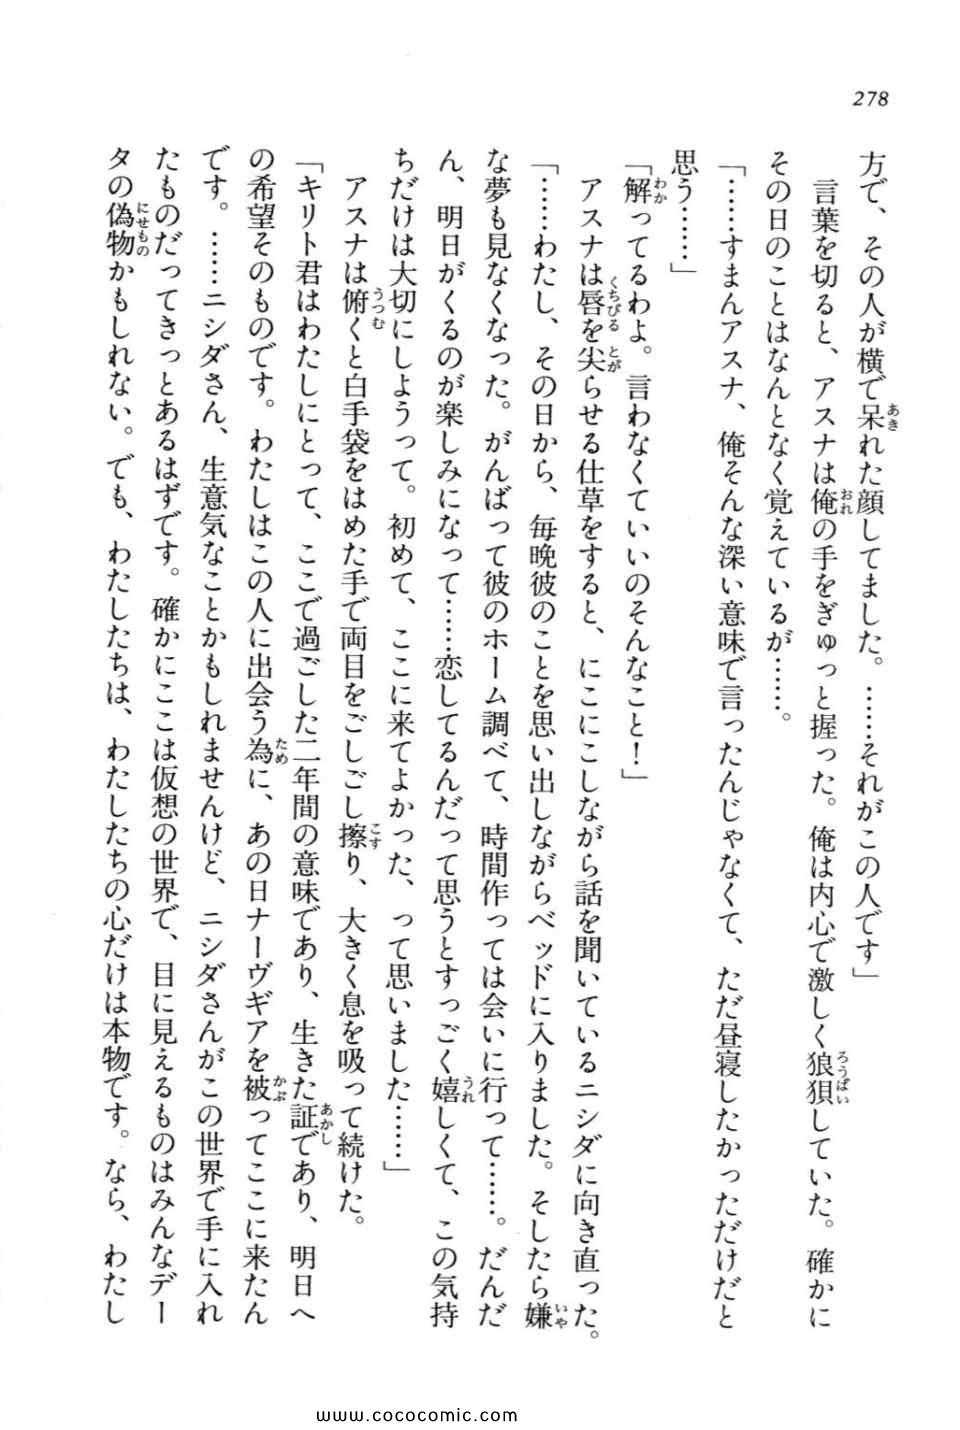 278
方で、その人が横で呆れた顔してました。……それがこの人です」
言葉を切ると、アスナは俺の手をぎゅっと握った。俺は内心で激しく狼狽していた。確かに
その日のことはなんとなく覚えているが……。
「……すまんアスナ、俺そんな深い意味で言ったんじゃなくて、ただ昼寝したかっただけだと
思う……」
「解ってるわよ。言わなくていいのそんなこと！」
アスナは唇を尖らせる仕草をすると、にこにこしながら話を聞いているニシダに向き直った。
「……わたし、その日から、毎晩彼のことを思い出しながらベッドに入りました。そしたら嫌
な夢も見なくなった。がんばって彼のホーム調べて、時間作っては会いに行って……。だんだ
ん、明日がくるのが楽しみになって……恋してるんだって思うとすっごく嬉しくて、この気持
ちだけは大切にしようって。初めて、ここに来てよかった、って思いました……」
アスナは俯くと白手袋をはめた手で両目をごしごし擦り、大きく息を吸って続けた。
「キリト君はわたしにとって、ここで過ごした二年間の意味であり、生きた証であり、明日へ
の希望そのものです。わたしはこの人に出会う為に、あの日ナーヴギアを被ってここに来たん
です。……ニシダさん、生意気なことかもしれませんけど、ニシダさんがこの世界で手に入れ
たものだってきっとあるはずです。確かにここは仮想の世界で、目に見えるものはみんなデー
タの偽物かもしれない。でも、わたしたちは、わたしたちの心だけは本物です。なら、わたし
www.cococomic.com